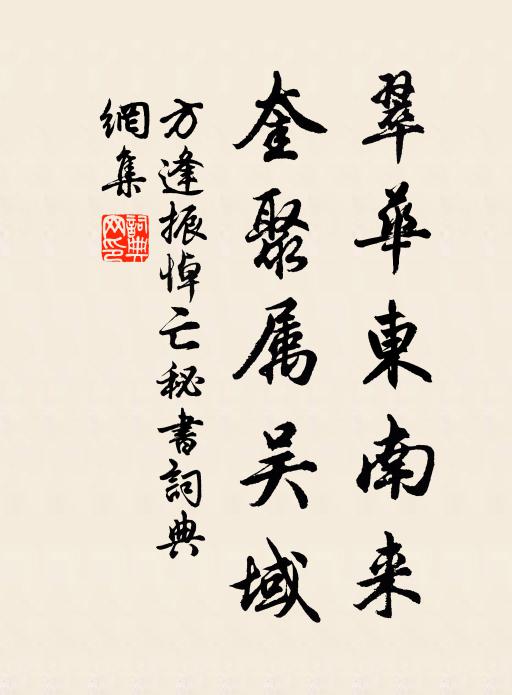 翠華東南来
奎聚属吴域
方逢振悼亡秘書詞典
網集
詞典
网印